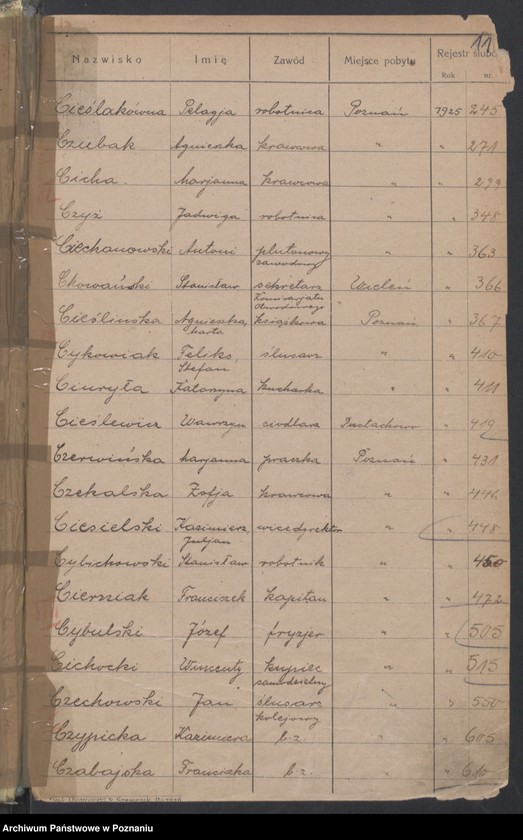 11
Nazwisko Imię Zawód Miejsce pobytu Rejestr ślubó
Rok nr.
Cieślakówna Pelagja robotnica Poznań 1925 245
Czubak Agnieszka krawcowa " " 271
Cicha Marjanna krawcowa " " 299
Czyż Jadwiga robotnica " " 348
Ciechanowski Antoni plutonowy zawodowy " " 363
Chowański Stanisław sekretarz " 366
Cieślińska Agnieszka, Marta Poznań " 367
Cykowiak Feliks, Stefan ślusarz " " 410
Ciuryła Katarzyna kucharka " " 411
Cieślewicz Wawrzyn siodlarz " 419
Czerwińska Marjanna praczka Poznań " 431
Czekalska Zofja krawcowa " " 446
Ciesielski Kazimierz, Juljan wicedyrektor " " 448
Cybichowski Stanisław robotnik " " 450
Cierniak Franciszek kapitan " " 472
Cybulski Józef fryzjer " " 505
Cichocki Wincenty kupiec samodzielny " " 515
Czechowski Jan ślusarz kolejowy " " 550
Czypicka Kazimiera b.z. " " 605
Czabajska Franciszka b.z. " " 610
Archiwum Państwowe w Poznaniu